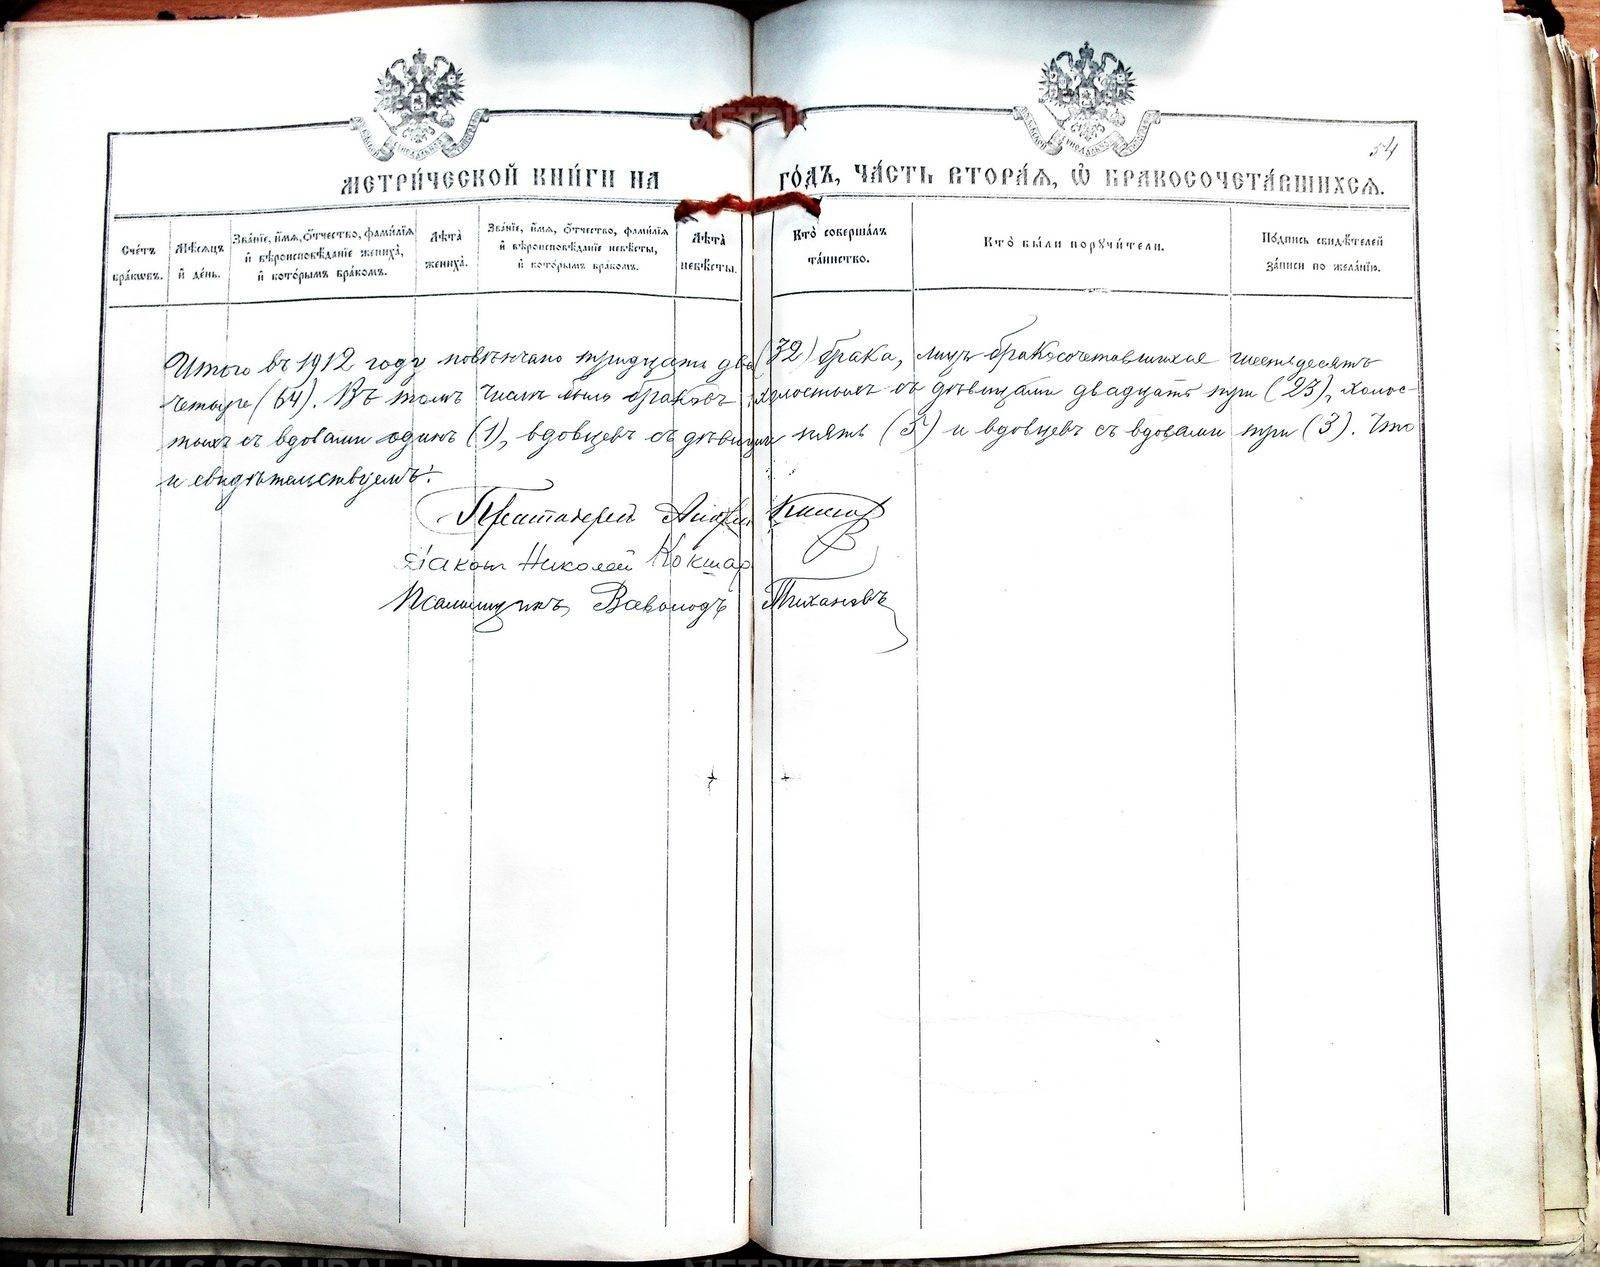 54
МЕТРИ́ЧЕСКОЙ КНИ́ГИ НА ГО́ДЪ, ЧА́СТЬ ВТОРА́Я, Ѽ БРАКОСОЧЕТА́ВШИХСЯ.
Сче́тъ бра́ковъ.
Мѣ́сяцъ и̓ де́нь.
Зва́нїе, и̓́мя, ѻ̓́тчество, фами́лїя и̓ вѣроисповѣ́данїе жениха̀, и̓ кото́рымъ бра́комъ.
Лѣ́та жениха̀.
Зва́нїе, и̓́мя, ѻ̓́тчество, фами́лїя и̓ вѣроисповѣ́данїе невѣ́сты, и̓ кото́рымъ бра́комъ.
Лѣ́та невѣ́сты.
Кто̀ соверша́лъ та́инство.
Кто̀ бы́ли поручи́тели.
По́дпись свидѣ́телей за́писи по жела́нїю.
Итого въ 1912 году повѣнчано тридцать два (32) брака, лицъ бракосочетавшихся шестьдесятъ
четыре (64). Въ томъ числѣ было браковъ: холостыхъ съ дѣвицами двадцать три (23), холос-
тыхъ съ вдовами одинъ (1), вдовцевъ съ дѣвицами пять (5) и вдовцевъ съ вдовами три (3). Что
и свидѣтельствуемъ:
Протоіерей
Діаконъ Николай Кокшар
Псаломщикъ Всеволодъ Тихановъ